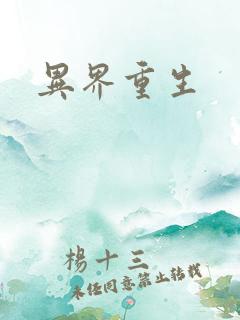 異界重生
楊十三
未經同意禁止轉載